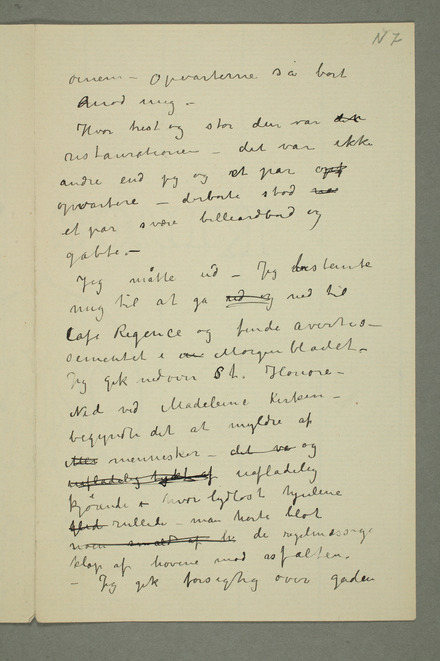 N 7
ovnem – opvarterne så bort
imod mig –
Hvor trist og stor den var den
restaurationen – det var ikke
andre end jeg og et par opv
opvartere – derborte stod
et par svære billeardbord og
gabte. –
Jeg måtte ud – Jeg bestemte
mig til at ga ned og ned til
Cafe Regence og finde avertis–
sementet i Morgenbladet. –
Jeg gik nedover St. Honore –
Ned ved Madeleine Kirken –
begyndte det at myldre af
mennesker – det va og
uafladelig tykt af uafladelig
kjørende – hvor lydløst hjulene
gled rullede – man hørte blot
noen smæld af de regelmæssige
klap af hovene mod asfalten.
– Jeg gik forsigtig over gaden